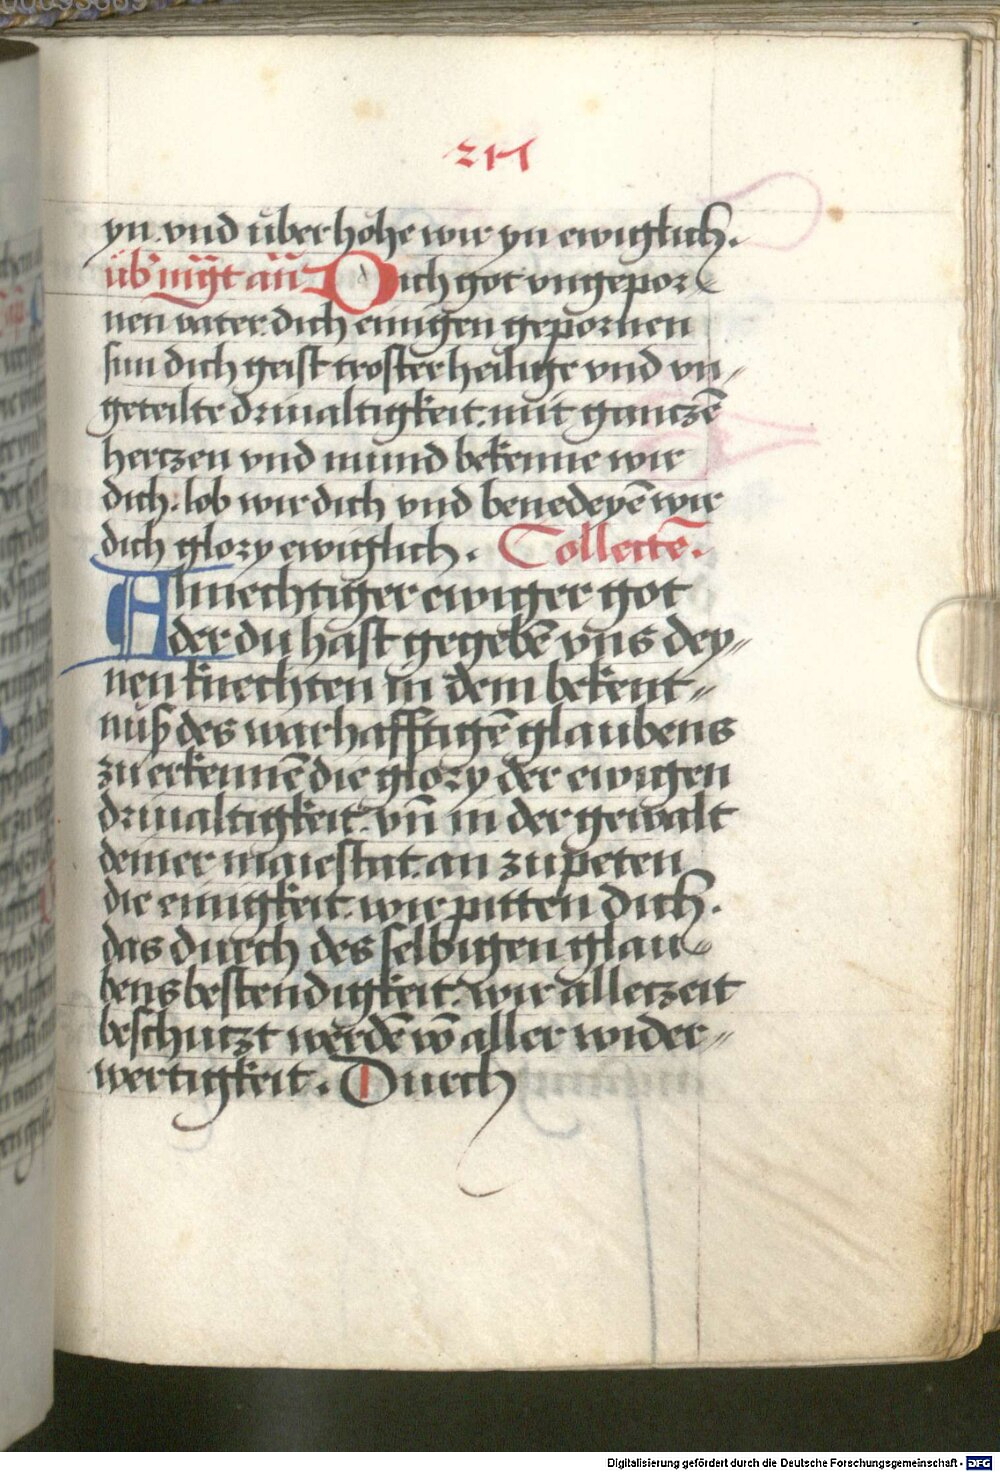 yn. vnd überhohe wir yn ewiglich.
üb' mg̃t añ Dich got vngepor
nen vater. dich einigen gepornen
sun dich geist troster heilige vnd vn-
geteilte driualtigkeit. mit ganczē
herczen vnd mund bekenne wir
dich. lob wir dich vnd benedeyē wir
dich glory ewiglich. Collectē.
Almechtiger ewiger got
der du hast gegebē vns dey-
nen knechten in dem bekent-
nuß des warhafftigē glaubens
zu erkennē die glory der ewigen
driualtigkeit. vñ in der gewalt
deiner maiestat. an zu peten
die einigkeit. wir pitten dich.
das durch des selbigen glau
bens bestendigkeit. wir allerzeit
beschutzt werdē vō aller wider-
wertigkeit. Durch
Digitalisierung gefördert durch die Deutsche Forschungsgemeinschaft - DFG